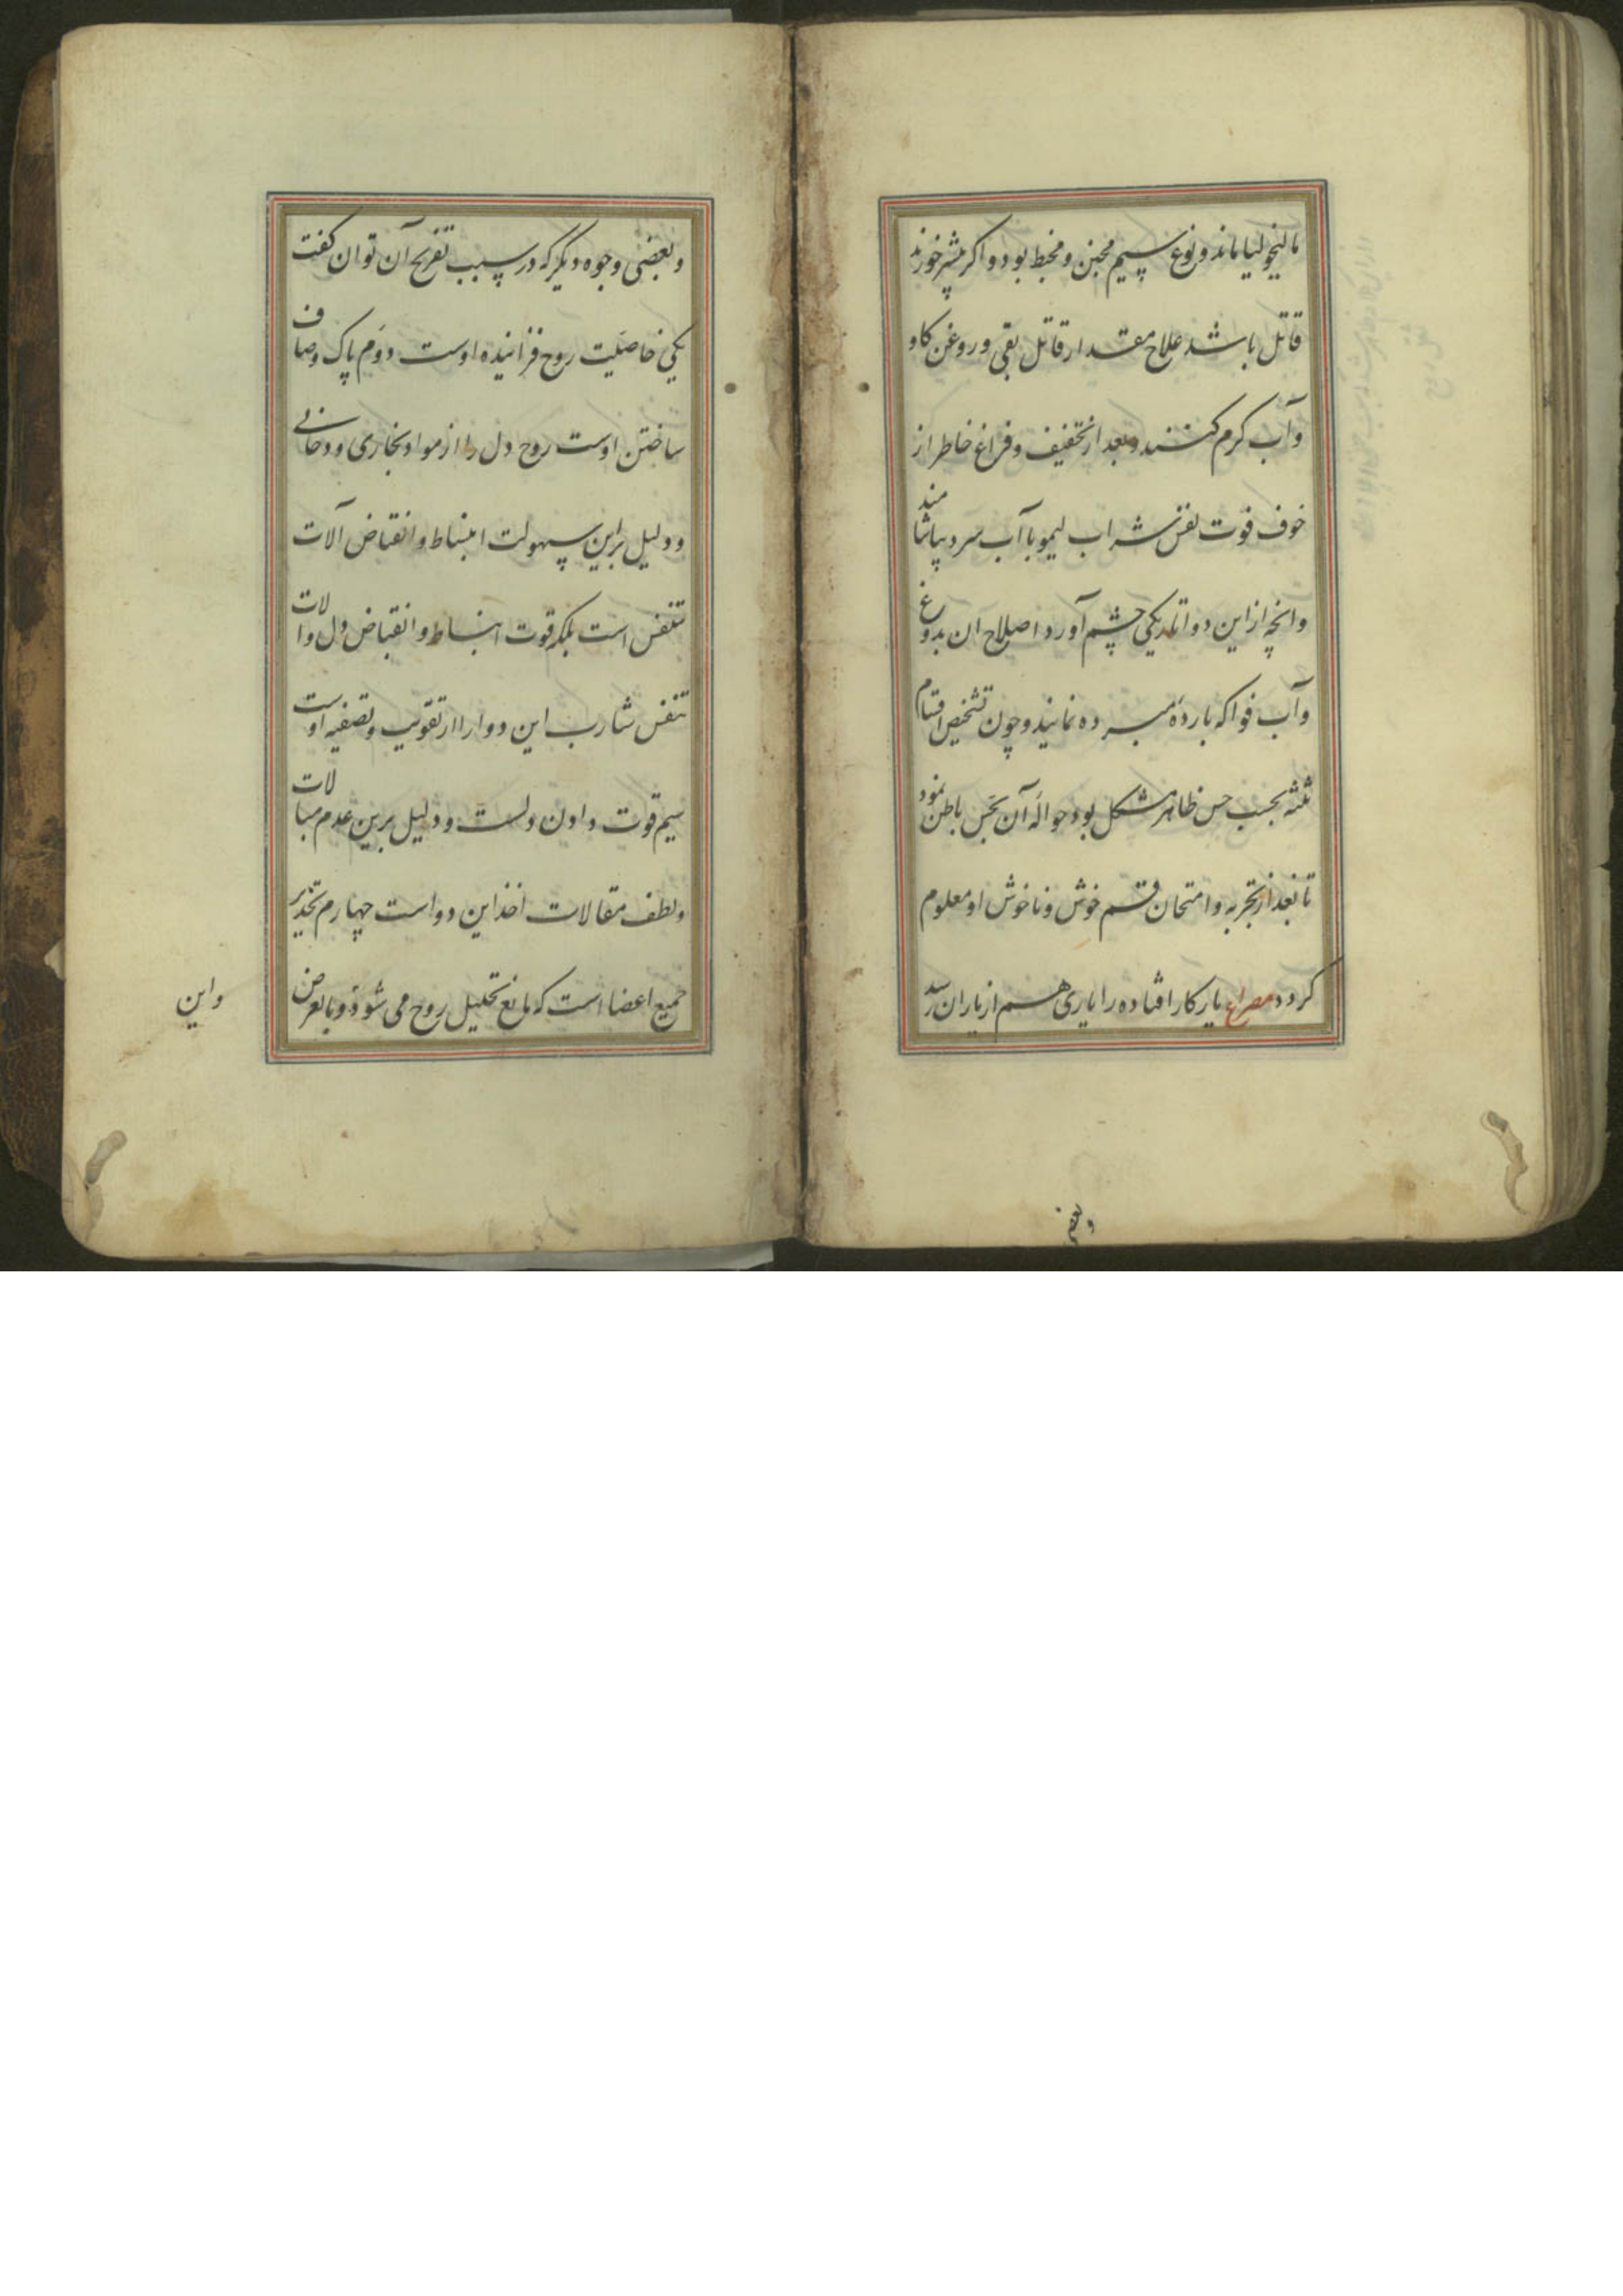 مالیخولیا ماند و نوع سیم مجنن و مخبط بود و اکر بیشتر خورند
قاتل باشد علاج مقدار قاتل بقی و روغن کاو
و آب کرم کنند و بعد از تخفیف و فراغ خاطر از
خوف فوت نفس شراب لیمو با آب سرد بیاشامند
وانچه از این دوا تاریکی چشم آورد اصلاح ان بدوغ
و آب فواکه بارده مبرده نمایند و چون تشخیص اقسام
ثلثه بحسب حس ظاهر مشکل بود حوالهٔ آن بحس باطن نمود
تا بعد از تجربه و امتحان قسم خوش و ناخوش او معلوم
کردد مصراع یار کار افتاده را یاری هم از یاران رسد
و بعضی
و بعضی وجوه دیکر که در سبب تفریح آن توان کفت
یکی خاصیت روح فزاینده اوست دوم پاک و صاف
ساختن اوست روح دل را از مواد بخاری و دخانی
و دلیل براین سهولت انبساط و انقباض آلات
تنفس است بلکه قوت انبساط و انقباض دل و الات
تنفس شارب این دوا را از تقویت و تصفیه اوست
سیم قوت دادن دلست و دلیل برین عدم مبالات
و لطف مقالات اخذ این دواست چهارم تخدیر
جمیع اعضا است که مانع تحلیل روح می شود و بالعرض
واین